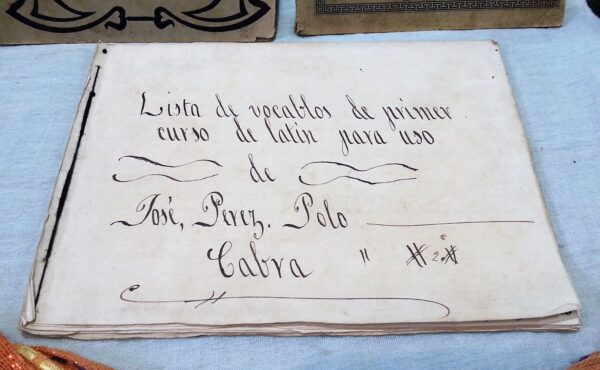 Lista de vocablos de primer
curso de latin para uso
de
José, Perez. Polo
Cabra " 2.º